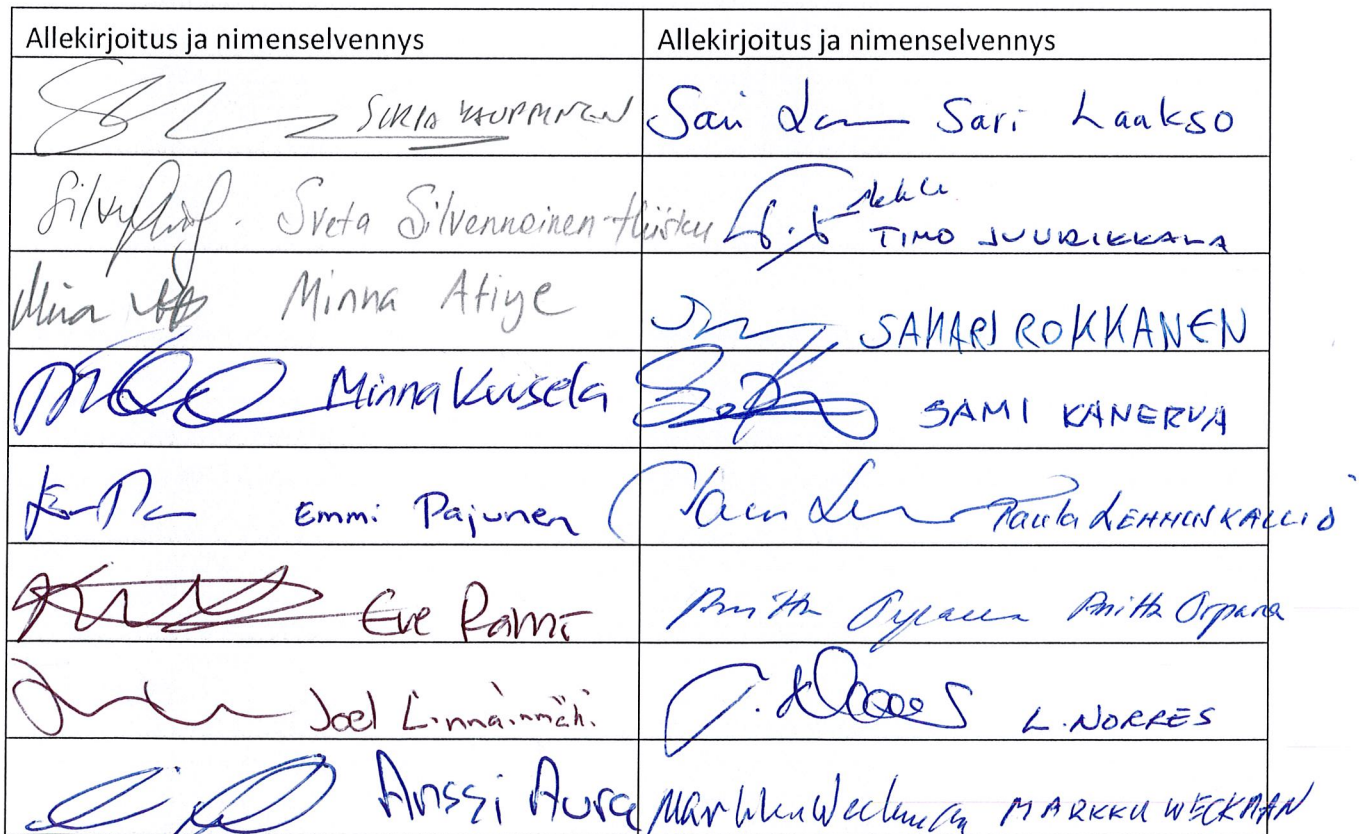 Allekirjoitus ja nimenselvennys Allekirjoitus ja nimenselvennys
SIRIA KAUPPINEN Sari Laakso
Sveta Silvennoinen-Hiisku TIMO JUURIKKALA
Minna Atiye SAKARI ROKKANEN
Minna Kuisela SAMI KANERVA
Emmi Pajunen Paula LEHMUSKALLIO
Eve Rämö Anitta Orpana
Joel Linnainmäki L. NORRES
Anssi Aura Markku Weckman MARKKU WECKMAN